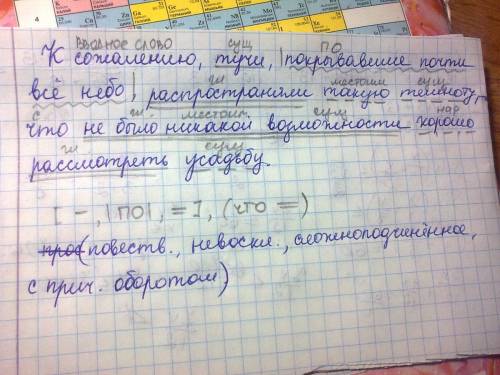 4
вводное слово сущ ПО
К сожалению, тучи, |покрывавшие почти
гл местоим сущ
всё небо|, распространяли такую темноту,
с гл. местоим. сущ. нар
что не было никакой возможности хорошо
гл сущ.
рассмотреть усадьбу.
[ − , |ПО| , = ] , (что =)
(повеств., невоскл., сложноподчинённое,
с прич. оборотом)